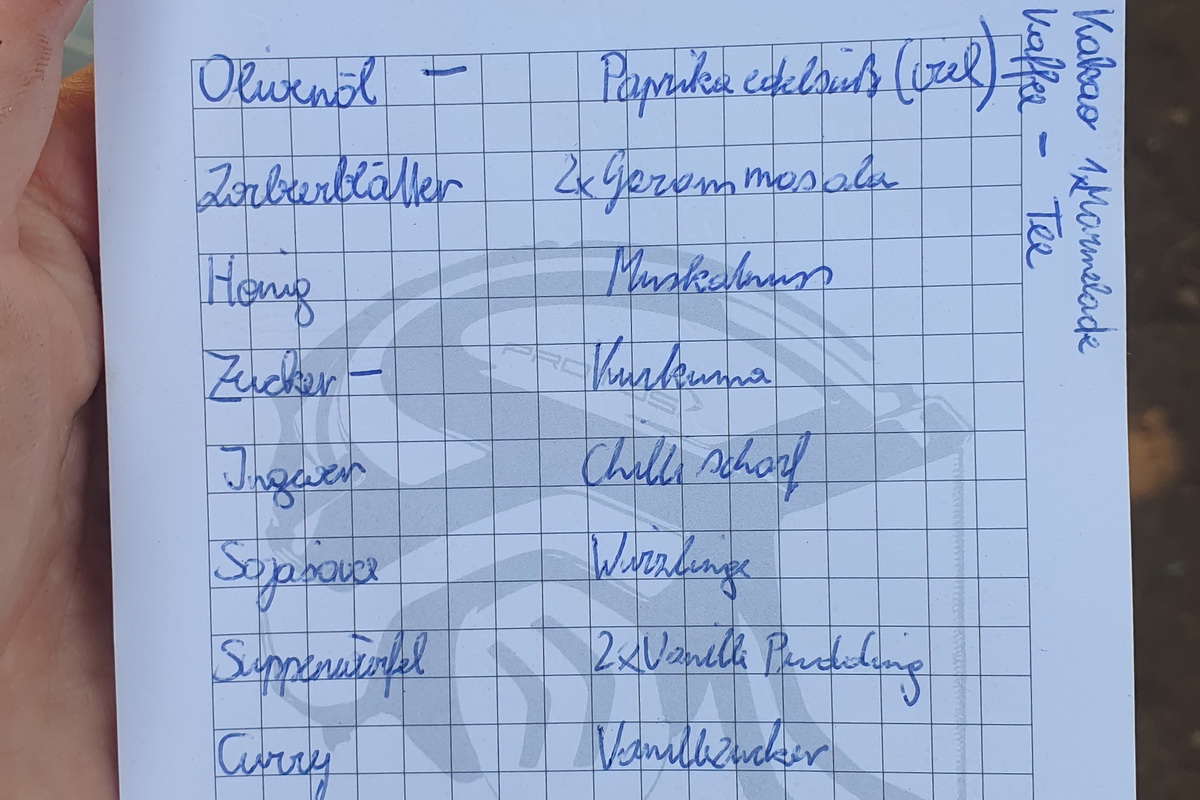 Olivenöl — Paprika edelsüß (viel)
Lorbeerblätter 2x Garam masala
Honig Muskatnuss
Zucker — Kurkuma
Ingwer Chilli scharf
Sojasauce Würzlinge
Suppenwürfel 2x Vanille Pudding
Curry Vanillezucker
Kakao 1x Marmelade
Kaffee — Tee
PROXXUS